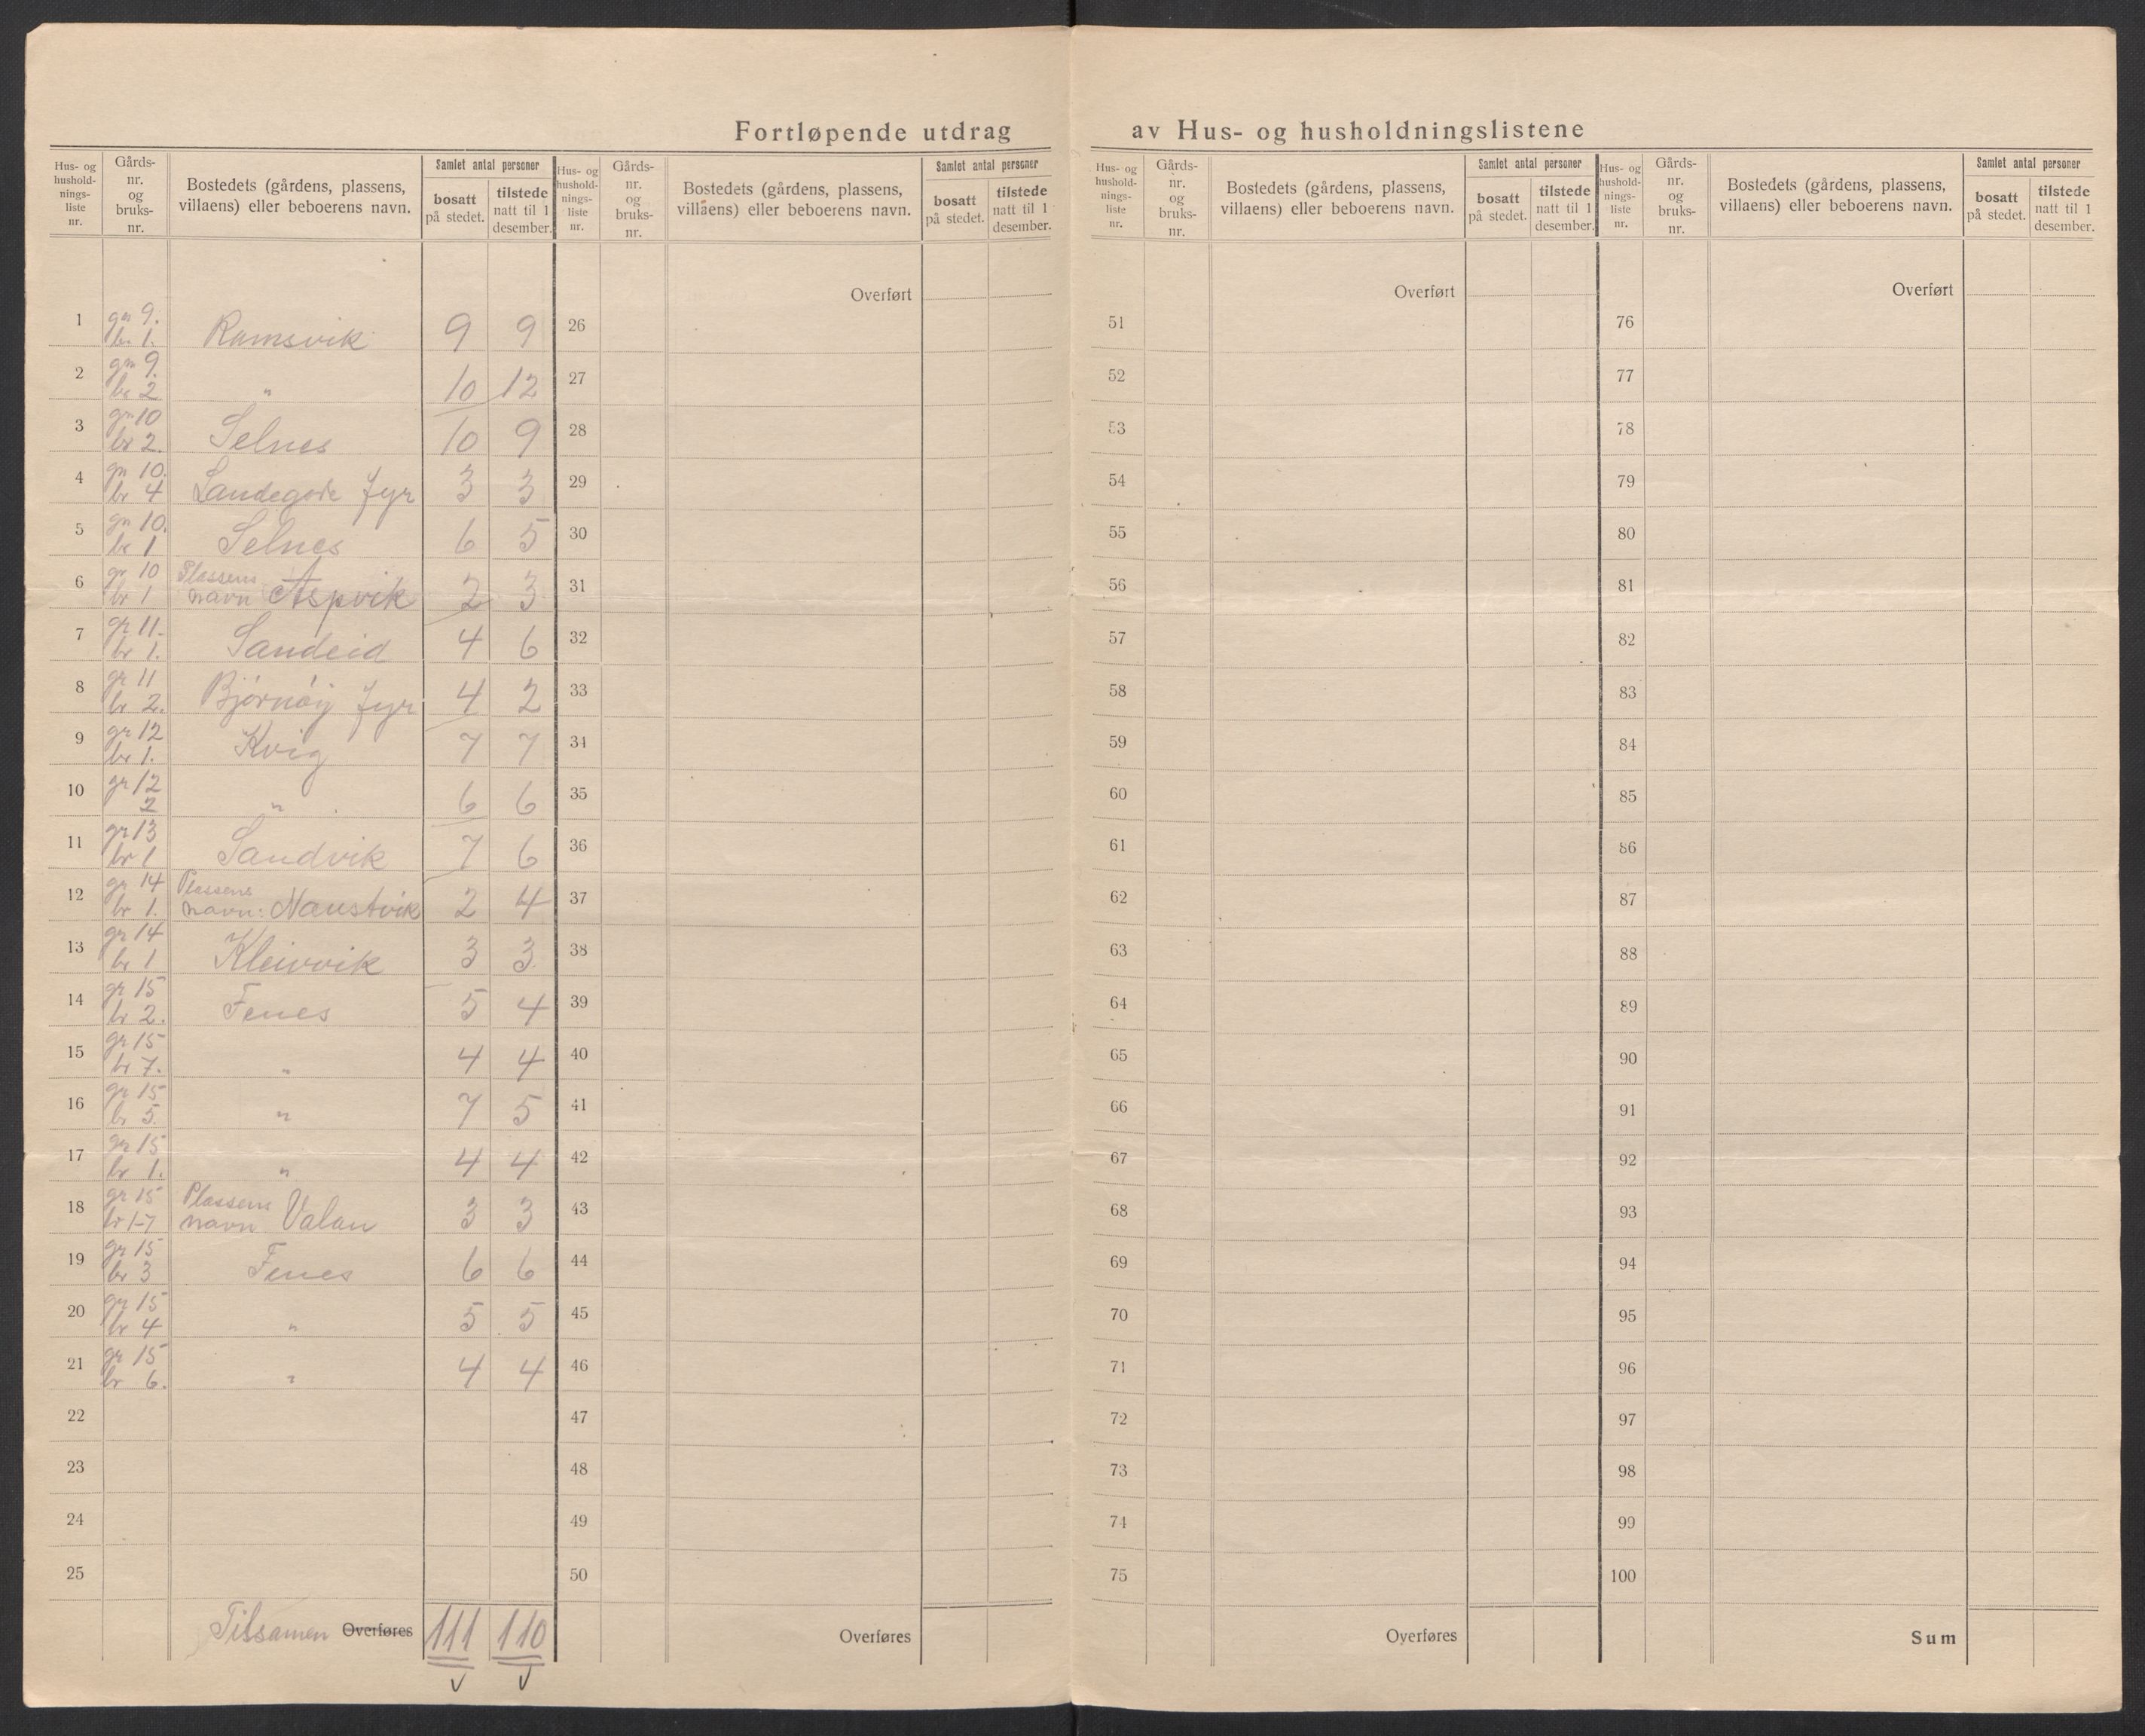 Fortløpende utdrag av Hus- og husholdningslistene
Hus- og hushold-nings-liste nr. | Gårds-nr. og bruks-nr. | Bostedets (gårdens, plassens, villaens) eller beboerens navn. | Samlet antal personer bosatt på stedet. | tilstede natt til 1 desember.
Hus- og hushold-nings-liste nr. | Gårds-nr. og bruks-nr. | Bostedets (gårdens, plassens, villaens) eller beboerens navn. | Samlet antal personer bosatt på stedet. | tilstede natt til 1 desember.
Hus- og hushold-nings-liste nr. | Gårds-nr. og bruks-nr. | Bostedets (gårdens, plassens, villaens) eller beboerens navn. | Samlet antal personer bosatt på stedet. | tilstede natt til 1 desember.
Hus- og hushold-nings-liste nr. | Gårds-nr. og bruks-nr. | Bostedets (gårdens, plassens, villaens) eller beboerens navn. | Samlet antal personer bosatt på stedet. | tilstede natt til 1 desember.
Overført Overført Overført
1 gn 9. br. 1. Ramsvik 9 9 26 51 76
2 gn 9. br 2 " 10 12 27 52 77
3 gn 10 br 2. Selnes 10 9 28 53 78
4 gn 10. br 4 Landegode fyr 3 3 29 54 79
5 gn 10. br 1 Selnes 6 5 30 55 80
6 gr 10 br 1 Plassens navn Aspvik 2 3 31 56 81
7 gr 11. br 1. Sandeid 4 6 32 57 82
8 gr 11 br 2. Bjørnøy fyr 4 2 33 58 83
9 gr 12 br 1. Kvig 7 7 34 59 84
10 gr 12 2 " 6 6 35 60 85
11 gr 13 br 1 Sandvik 7 6 36 61 86
12 gr 14 br 1. Plassens navn: Naustvik 2 4 37 62 87
13 gr 14 br 1 Kleivvik 3 3 38 63 88
14 gr 15 br 2. Fenes 5 4 39 64 89
15 gr 15 br 7. " 4 4 40 65 90
16 gr 15 br 5. " 7 5 41 66 91
17 gr 15 br 1. " 4 4 42 67 92
18 gr 15 br 1-7 Plassens navn Valan 3 3 43 68 93
19 gr 15 br 3 Fenes 6 6 44 69 94
20 gr 15 br 4 " 5 5 45 70 95
21 gr 15 br 6. " 4 4 46 71 96
22 47 72 97
23 48 73 98
24 49 74 99
25 50 75 100
Tilsamen Overføres 111 110 Overføres Overføres Sum